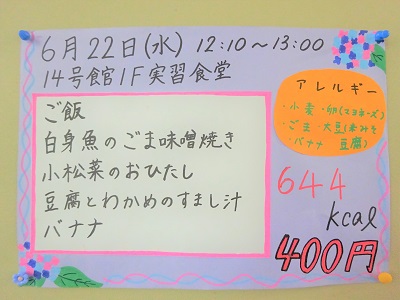 6月22日(水) 12:10～13:00
14号館1F実習食堂
ご飯
白身魚のごま味噌焼き
小松菜のおひたし
豆腐とわかめのすまし汁
バナナ
アレルギー
・小麦・卵(マヨネーズ)
・ごま・大豆(まみそ
・バナナ 豆腐)
644
kcal
400円